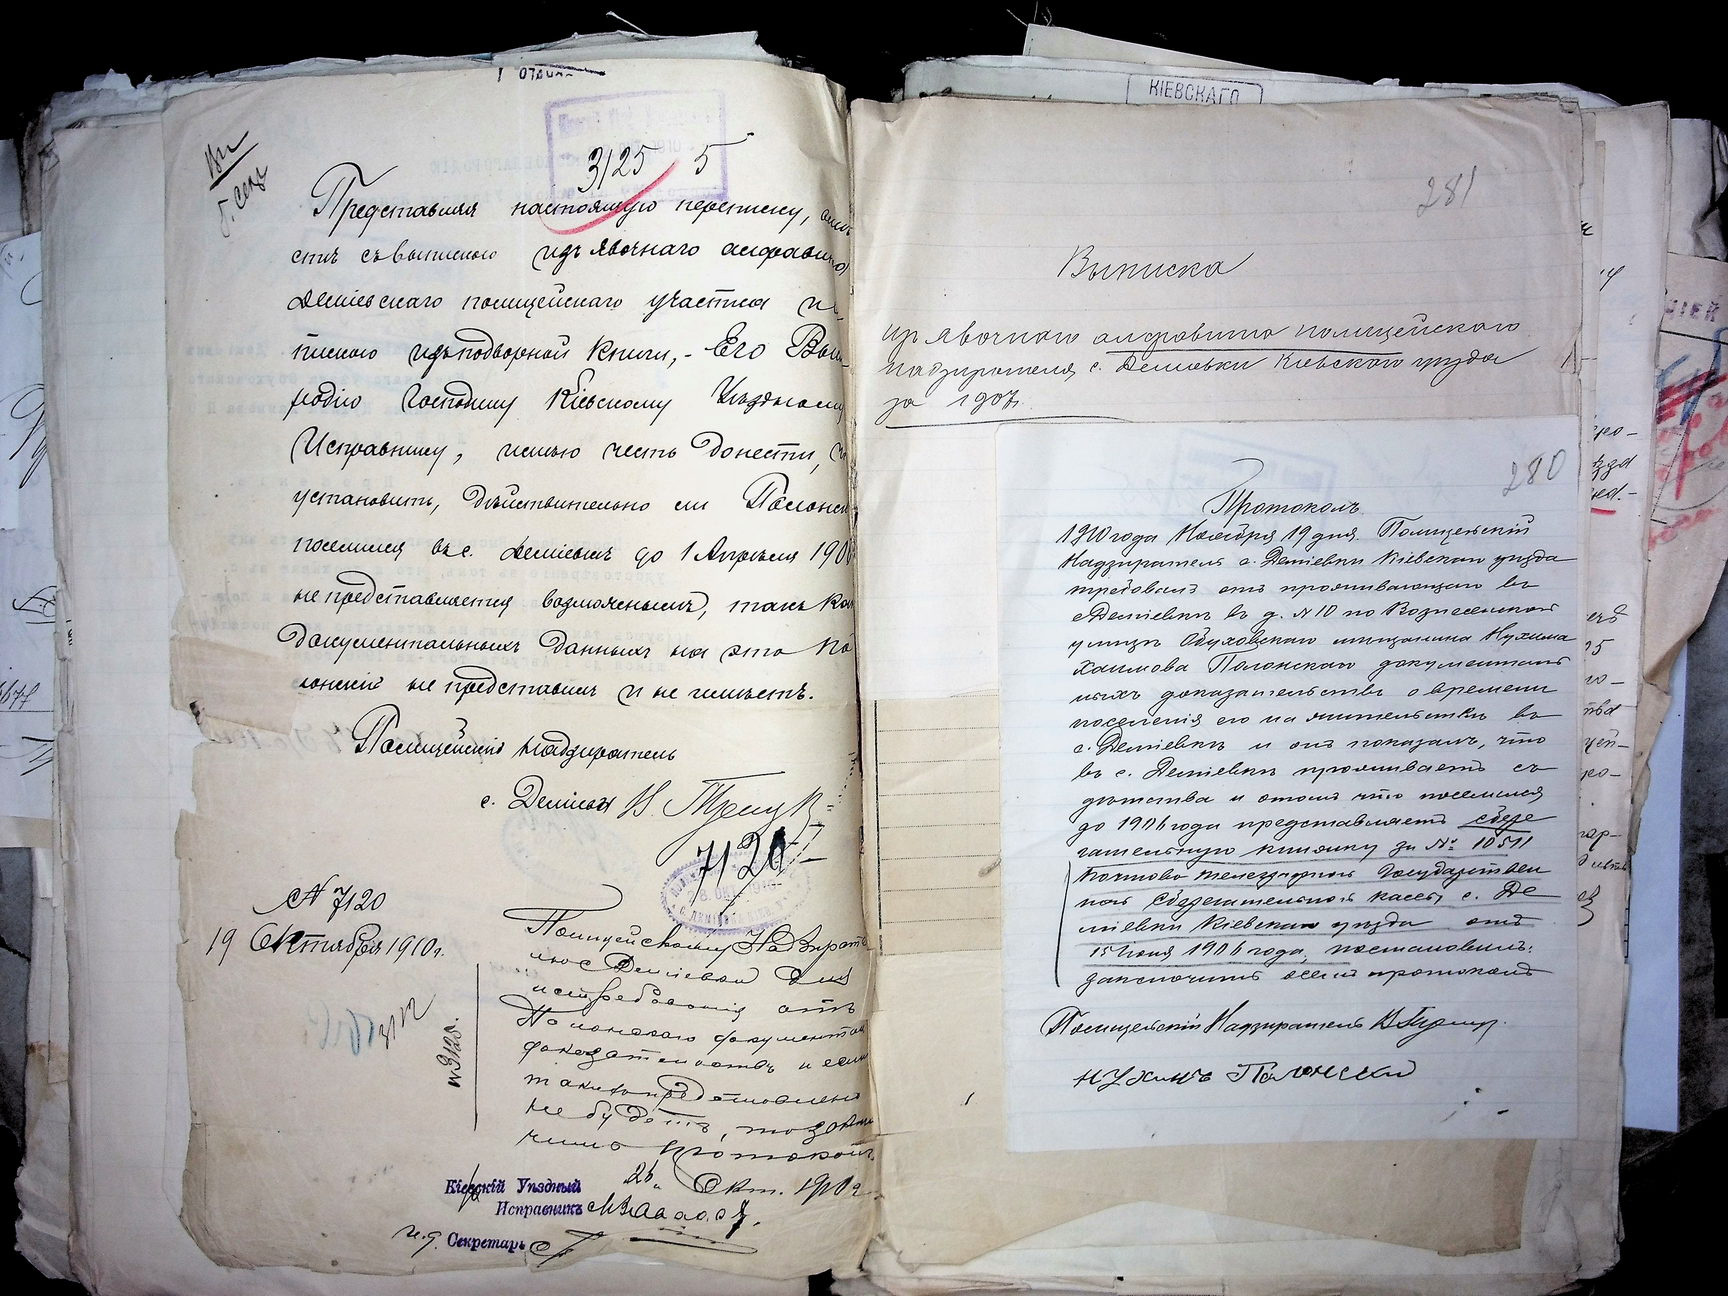 3125 5
Представляя настоящую переписку, вмѣ
стѣ съ выпискою изъ явочнаго алфавита
Деміевскаго полицейскаго участка и
пискою изъ подворной книги,- Его Высо
родію Господину Кіевскому Уѣздному
Исправнику, имѣю честь донести, ч
установить, дѣйствительно ли Полонск
поселился въ с. Деміевкѣ до 1 Апрѣля 190
не представляется возможнымъ, такъ как
документальныхъ данныхъ на это По
лонскій не представилъ и не имѣетъ.
Полицейскій Надзиратель
с. Деміевки
7120
№ 7120
19 Октября 1910 г.
№ 3125.
Полицейскому Надзирате
лю с. Деміевки для
истребованія отъ
Полонскаго документал
доказательствъ и если
таковыхъ представлено
не будетъ, то заклю
чить протоколъ.
26 Окт. 1910 г.
Кіевскій Уѣздный
Исправникъ
и.д. Секретарь
КІЕВСКАГО
281
Выписка
изъ явочнаго алфавита полицейскаго
надзирателя с. Деміевки Кіевскаго уѣзда
за 1907 г.
280
Протоколъ.
1910 года Ноября 19 дня. Полицейскій
Надзиратель с. Деміевки Кіевскаго уѣзда
требовалъ отъ проживающаго въ
с. Деміевкѣ въ д. № 10 по Вознесенской
улицѣ Обуховскаго мѣщанина Нухима
Хаимова Полонскаго документаль
ныхъ доказательствъ о времени
поселенія его на жительство въ
с. Деміевкѣ и онъ показалъ, что
въ с. Деміевкѣ проживаетъ съ
дѣтства и о томъ что поселился
до 1906 года представляетъ сбере
гательную книжку за № 10511
Почтово телеграфной Государствен
ной сберегательной кассы, с. Де
міевки Кіевскаго уѣзда отъ
15 Іюня 1906 года, постановилъ:
заключить о семъ протоколъ
Полицейскій Надзиратель
Нухимъ Полонскій